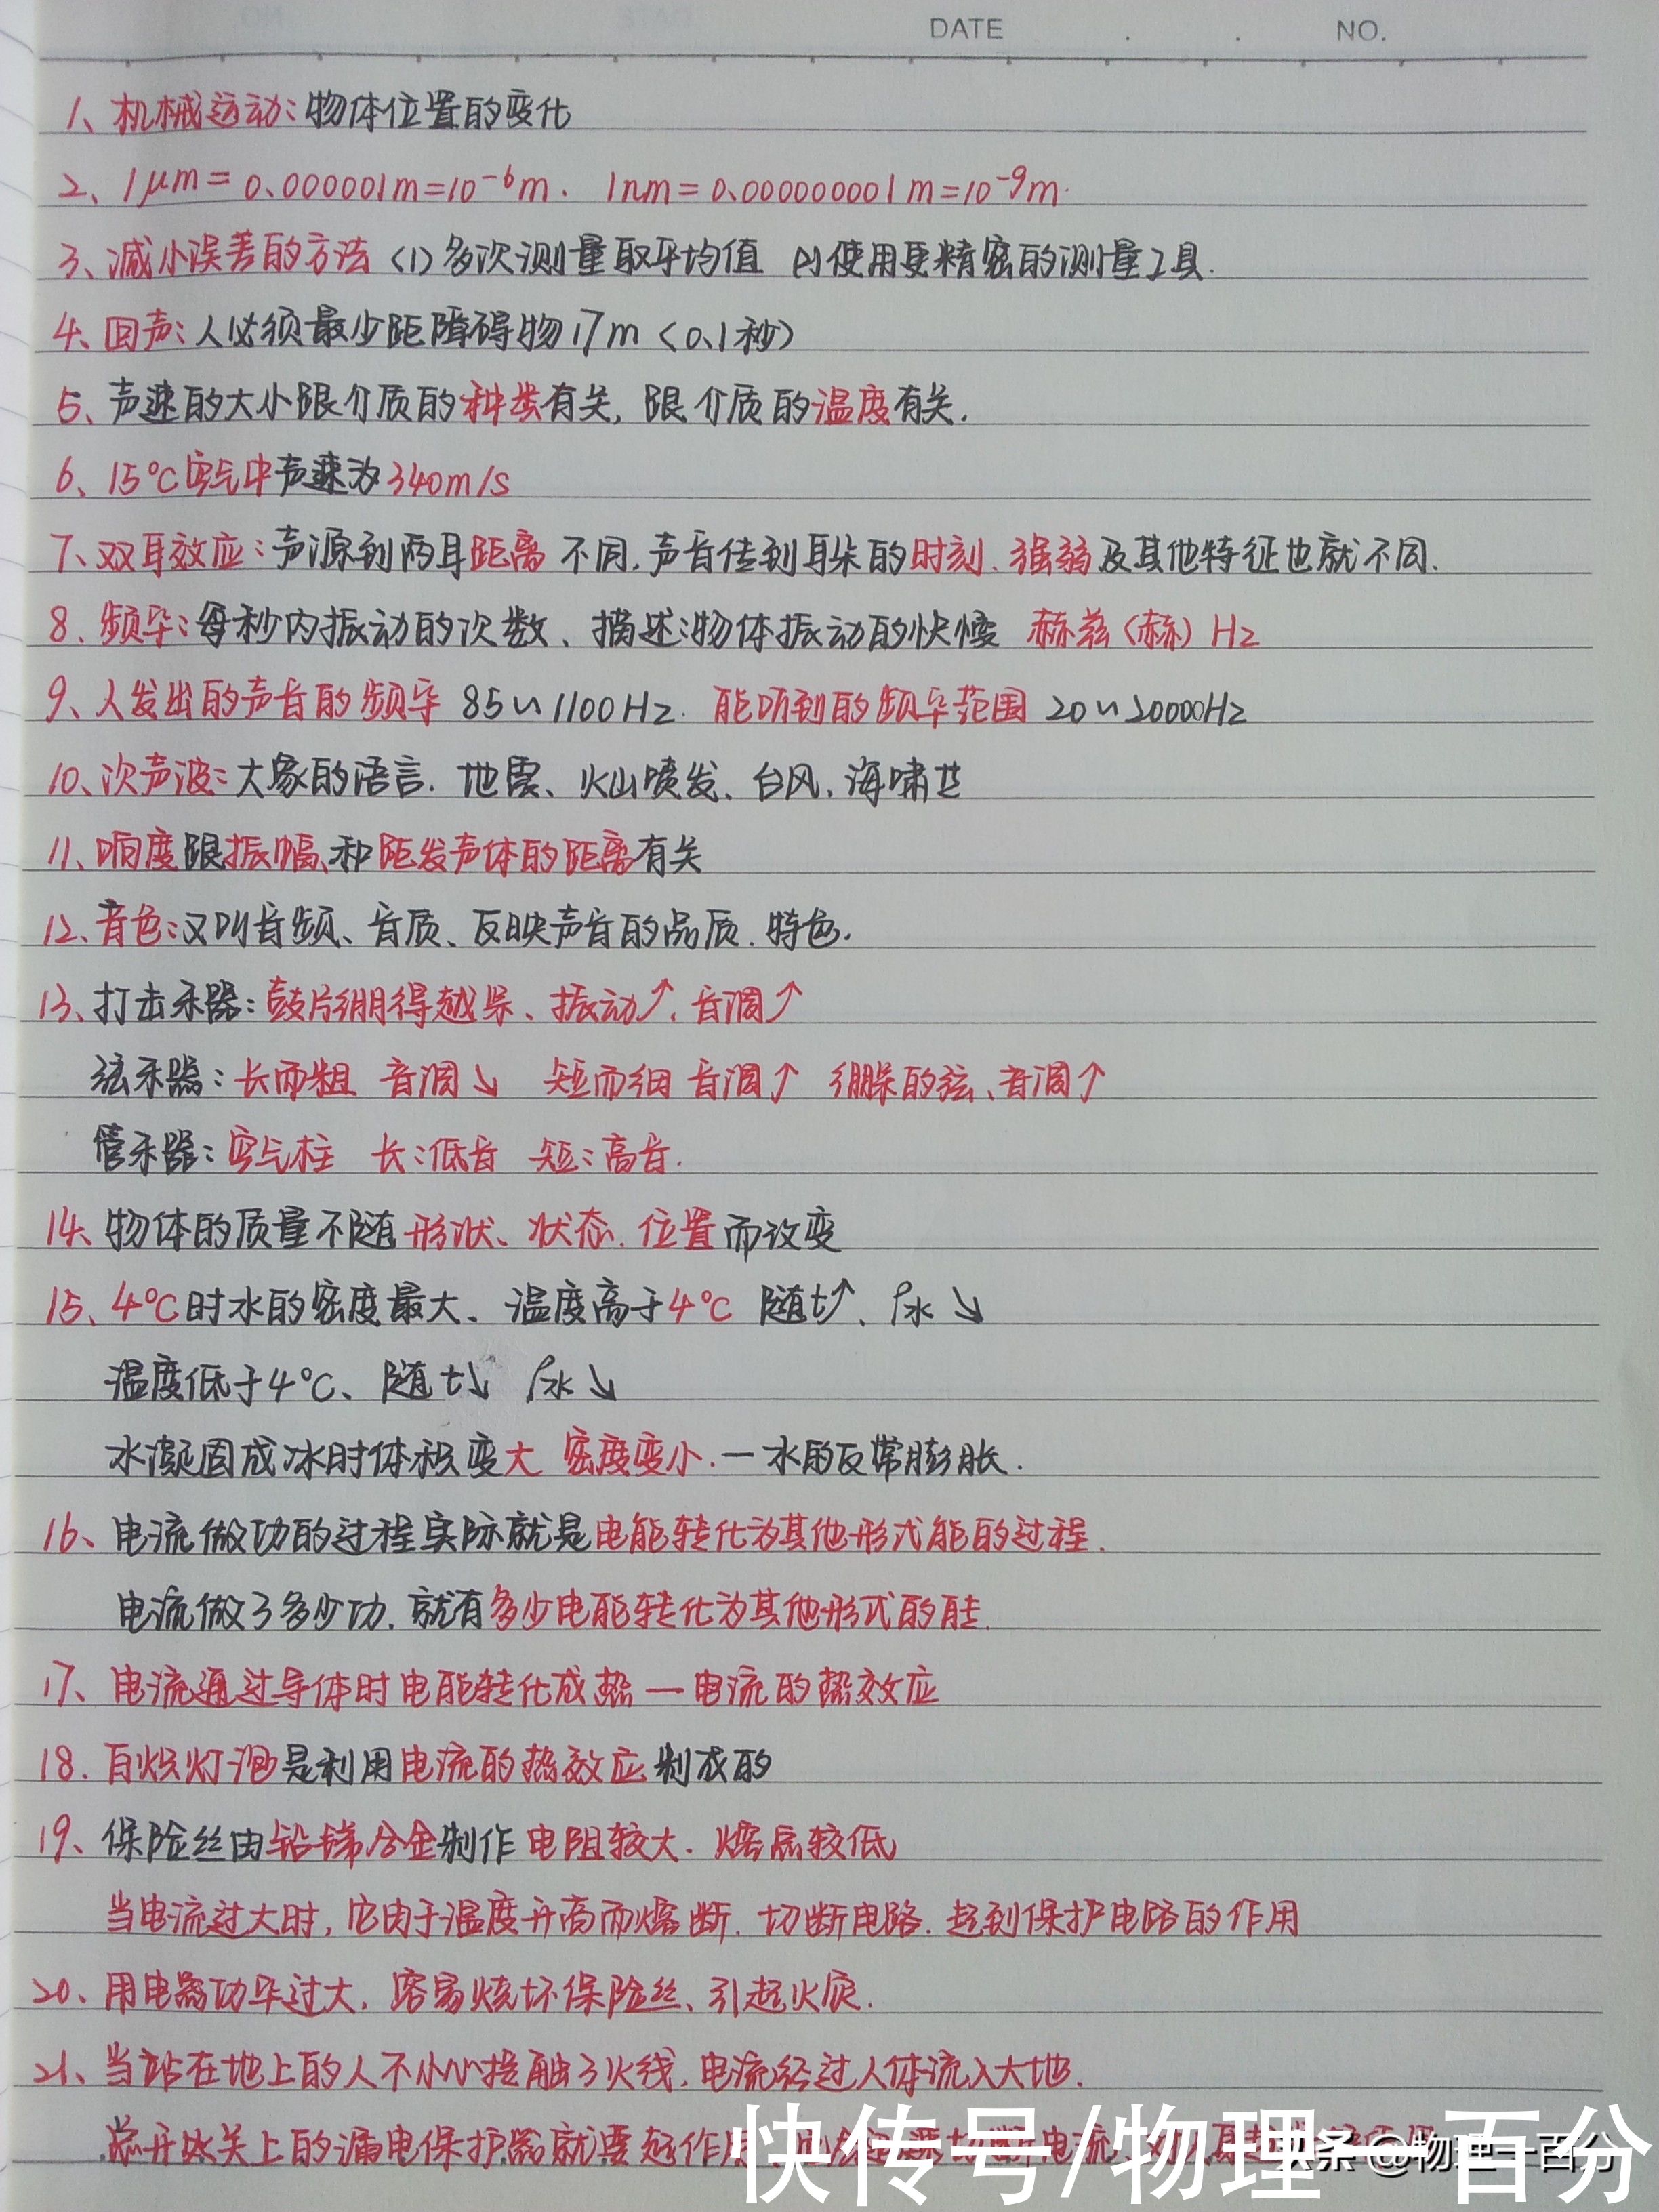 DATE . . NO.
1、机械运动：物体位置的变化
2、1μm=0.000001m=10⁻⁶m. 1nm=0.000000001m=10⁻⁹m.
3、减小误差的方法 (1)多次测量取平均值 (2)使用更精密的测量工具.
4、回声：人必须最少距障碍物17m（0.1秒）
5、声速的大小跟介质的种类有关，跟介质的温度有关.
6、15℃空气中声速为340m/s
7、双耳效应：声源到两耳距离不同.声音传到耳朵的时刻、强弱及其他特征也就不同.
8、频率：每秒内振动的次数、描述物体振动的快慢 赫兹（赫）Hz
9、人发出的声音的频率 85~1100Hz. 能听到的频率范围 20~20000Hz
10、次声波：大象的语言. 地震、火山喷发、台风、海啸等
11、响度跟振幅、和距发声体的距离有关
12、音色：又叫音频、音质、反映声音的品质.特色.
13、打击乐器：鼓片绷得越紧、振动↑、音调↑
弦乐器：长而粗 音调↘ 短而细 音调↑ 绷紧的弦、音调↑
管乐器：空气柱 长：低音 短：高音.
14、物体的质量不随形状、状态.位置而改变
15、4℃时水的密度最大、温度高于4℃ 随t↑、ρ水↘
温度低于4℃、随t↘ ρ水↘
水凝固成冰时体积变大 密度变小.—水的反常膨胀.
16、电流做功的过程实际就是电能转化为其他形式能的过程.
电流做了多少功.就有多少电能转化为其他形式的能.
17、电流通过导体时电能转化成热—电流的热效应
18.白炽灯泡是利用电流的热效应制成的
19、保险丝由铅锑合金制作 电阻较大. 熔点较低
当电流过大时，它由于温度升高而熔断.切断电路.起到保护电路的作用
20、用电器功率过大，容易烧坏保险丝、引起火灾.
21、当站在地上的人不小心接触了火线.电流经过人体流入大地.
总开关上的漏电保护器就要起作用
快传号/物理一百分
头条 @物理一百分